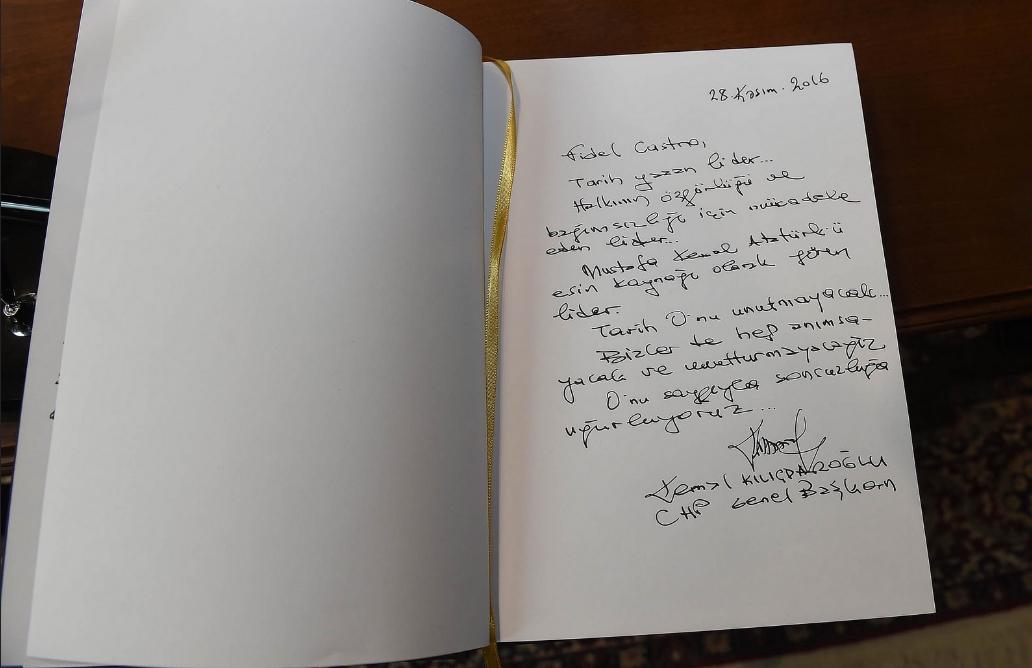 28.Kasım.2016
Fidel Castro,
Tarih yazan lider...
Halkının özgürlüğü ve
bağımsızlığı için mücadele
eden lider...
Mustafa Kemal Atatürk'ü
esin kaynağı olarak gören
lider.
Tarih O'nu unutmayacak...
Bizler de hep anımsa-
yacak ve unutturmayacağız
O'nu saygıyla sonsuzluğa
uğurluyoruz...
Kemal KILIÇDAROĞLU
CHP Genel Başkanı